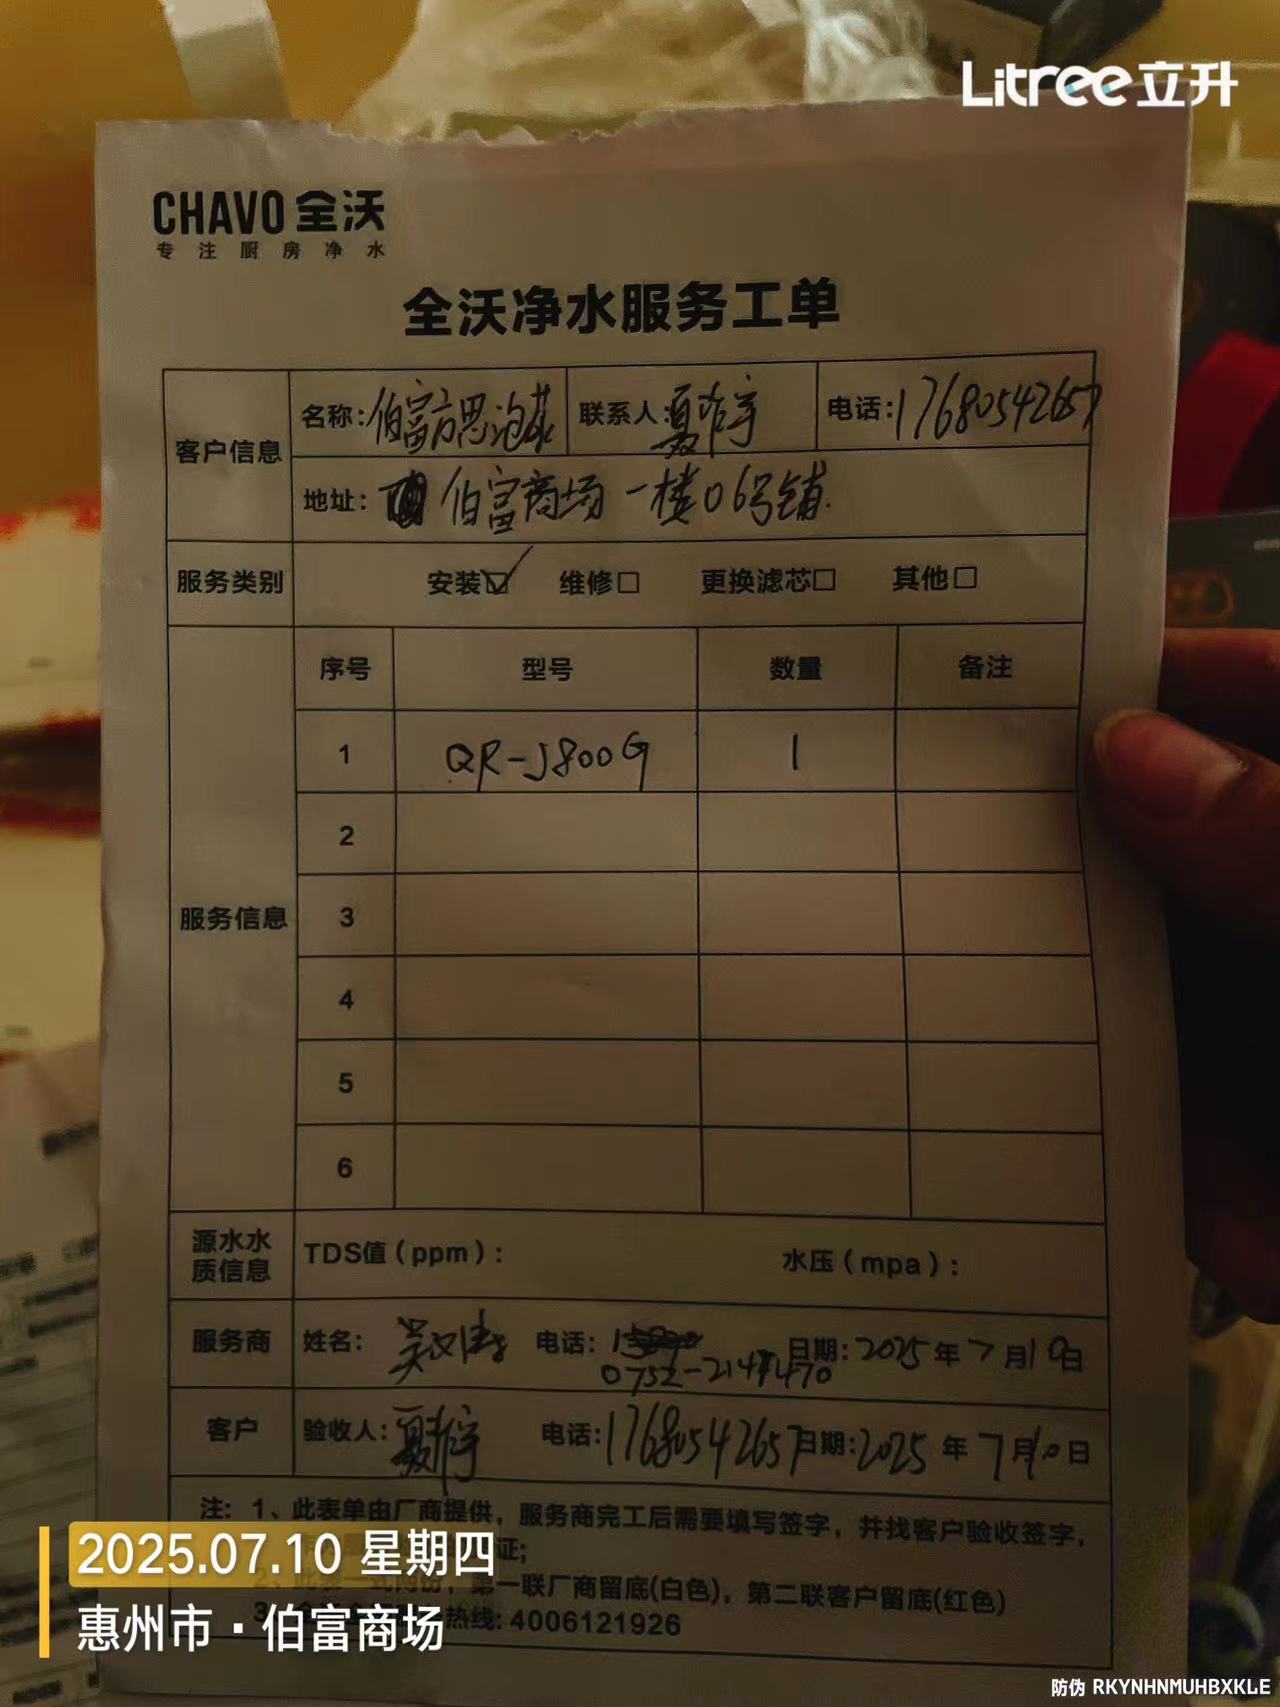 Litree立升
CHAVO 全沃
专注厨房净水
全沃净水服务工单
客户信息
名称:伯富方思泡菜 联系人:夏作宇 电话:17680542657
地址: 伯富商场一楼06号铺.
服务类别 安装☑ 维修□ 更换滤芯□ 其他□
服务信息
序号 型号 数量 备注
1 QR-J800G 1
2
3
4
5
6
源水水质信息 TDS值(ppm): 水压(mpa):
服务商 姓名: 电话: 日期:2025年7月10日
0752-2147470
客户 验收人:夏作宇 电话:17680542657日期:2025年7月10日
注: 1、此表单由厂商提供,服务商完工后需要填写签字,并找客户验收签字,
证;
第一联厂商留底(白色),第二联客户留底(红色)
热线: 4006121926
2025.07.10 星期四
惠州市·伯富商场
防伪 RKYNHNMUHBXKLE